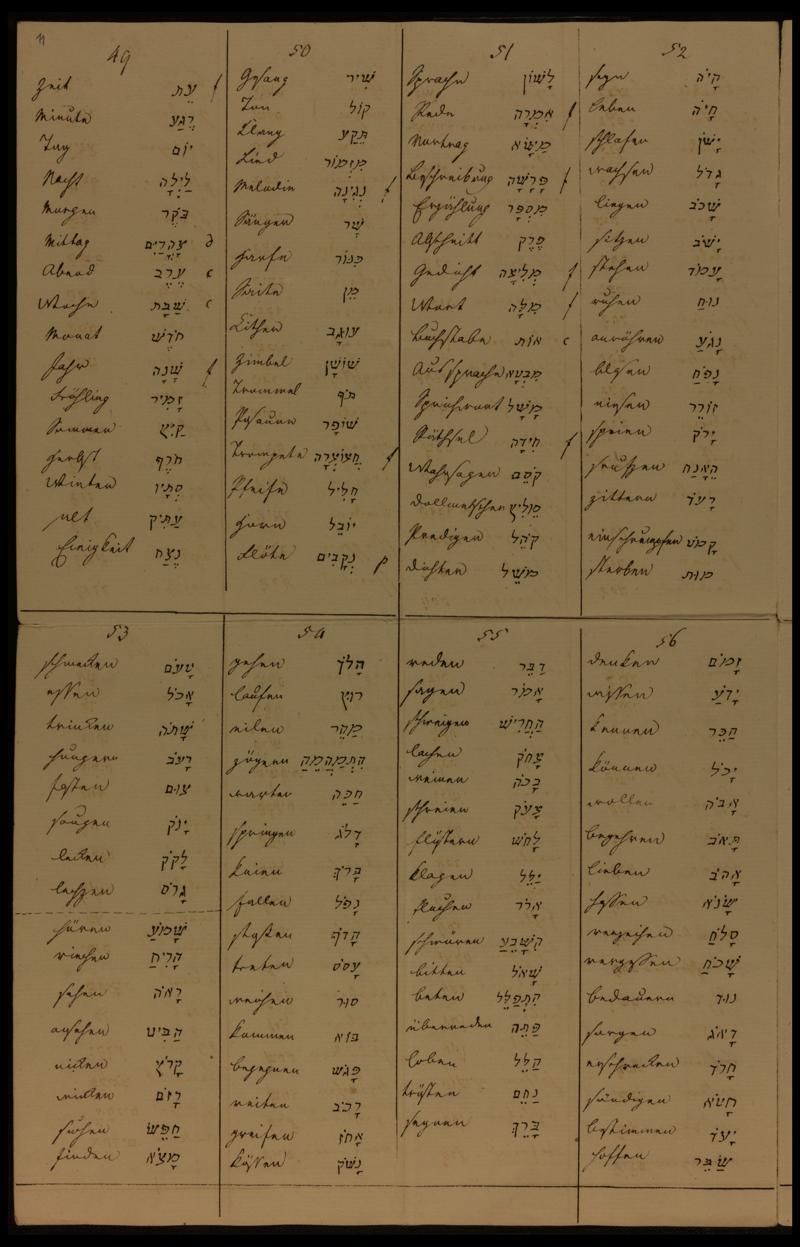 11
49
Zeit עֵת f
Minute רֶגַע
Tag יוֹם
Nacht לַיְלָה
Morgen בֹּקֶר
Mittag צָהֳרַיִם d
Abend עֶרֶב c
Woche שַׁבָּת c
Monat חֹדֶשׁ
Jahr שָׁנָה f
Fröhling זָמִיר
Sommer קַיִץ
Herbst חֹרֶף
Winter סְתָיו
alt עַתִּיק
Einigkeit נֶצַח
50
Gesang שִׁיר
Ton קוֹל
Klang תֵּקַע
Lied מִזְמוֹר
Melodie נְגִינָה f
Sänger שָׁר
Harfe כִּנּוֹר
Saite מֵן
Zither עוּגָב
Zimbel שׁוֹשָׁן
Trommel תֹּף
Posaune שׁוֹפָר
Trompete חֲצוֹצְרָה f
Pfeife חָלִיל
Horn יוֹבֵל
Flöte נְקָבִים p
51
Sprache לָשׁוֹן
Rede אִמְרָה f
Vortrag מַשָּׂא
Beschreibung פָּרָשָׁה f
Erzählung מִסְפָּר
Abschnitt פֶּרֶק
Gedicht מְלִיצָה f
Wort מִלָּה f
Buchstabe אוֹת c
Aussprache מִבְטָא
Sprichwort מָשָׁל
Räthsel חִידָה f
Wahrsager קֹסֵם
Dollmetscher מֵלִיץ
Prediger קֹהֵל
Dichter מֹשֵׁל
52
seyn הָיֹה
leben חָיֹה
schlafen יָשֹׁן
wachsen גָּדֹל
liegen שָׁכֹב
sitzen יָשֹׁב
stehen עָמוֹד
ruhen נוּחַ
anrühren נָגֹעַ
blasen נָפֹחַ
niesen זוֹרֵר
speien יָרֹק
seufzen הֵאָנַח
zittern רָעֹד
einschrumpfen קָמֹט
sterben מוּת
53
schmecken טָעֹם
essen אָכֹל
trinken שָׁתֹה
hungern רָעֹב
fasten צוּם
saugen יָנֹק
lecken לָקֹק
lechzen גָּרֹס
hören שָׁמוֹעַ
riechen הָרִיחַ
sehen רָאֹה
ansehen הַבִּיט
nicken קָרֹץ
winken רָזֹם
suchen חַפֵּשׂ
finden מָצֹא
54
gehen הָלֹךְ
laufen רוּץ
eilen מַהֵר
zögern הִתְמַהְמֵהַּ
warten חַכֵּה
springen דָּלֹג
knien בָּרֹךְ
fallen נָפֹל
stoßen הָדֹף
treten עָסֹס
weichen סוּר
kommen בּוֹא
begegnen פָּגֹשׁ
reiten רָכֹב
greifen אָחֹז
küssen נָשֹׁק
55
reden דַּבֵּר
sagen אָמֹר
schweigen הַחֲרִישׁ
lachen צָחֹק
weinen בָּכֹה
schreien צָעֹק
flüstern לָחֹשׁ
klagen יַלֵּל
fluchen אָרֹר
schwören הִשָּׁבֵעַ
bitten שָׁאֹל
beten הִתְפַּלֵּל
überreden פַּתֵּה
loben הַלֵּל
trösten נַחֵם
segnen בָּרֵךְ
56
denken זָמוֹם
wissen יָדֹעַ
kennen הַכֵּר
können יָכֹל
wollen אָבֹה
begehren תָּאֹב
lieben אָהֹב
hassen שָׂנֹא
verzeihen סָלֹחַ
vergessen שָׁכֹחַ
bedauern נוּד
sorgen דָּאֹג
erschrecken חָרֹד
sündigen חָטֹא
bestimmen יָעֹד
hoffen שַׂבֵּר